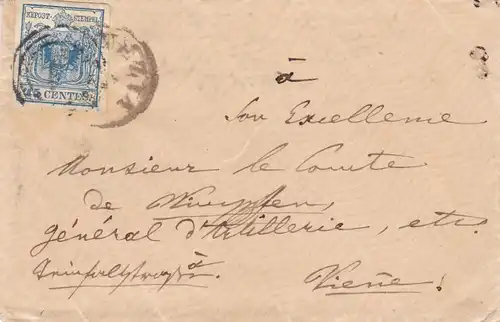 KKPOST-STEMPEL
45 CENTES
à
Son Excellence
Monsieur le Comte
de Wimpffen,
général d'Artillerie, etc.
à
Vienne!